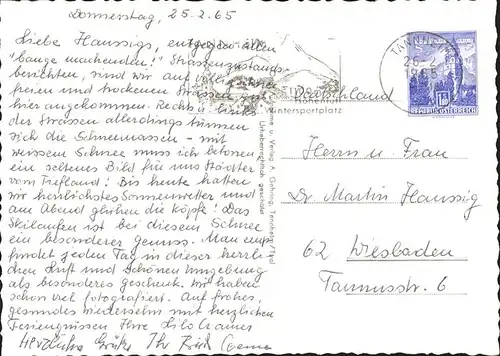 Donnerstag, 25.2.65
Liebe Haussigs, entgegen allen
"bange machenden" Strassenzustands-
berichten, sind wir auf völlig
freien und trockenen Strassen gut
hier angekommen. Rechts u. links
der Strassen allerdings türmen
sich die Schneemassen - mit
weissem Schnee muss ich betonen,
ein seltenes Bild für uns Städter
vom Tiefland! Bis heute hatten
wir herrlichstes Sonnenwetter und
am Abend glühen die Köpfe! Das
Skilaufen ist bei diesem Schnee
ein besonderer Genuss. Man emp-
findet jeden Tag in dieser herrli-
chen Luft und schönen Umgebung
als besonderes Geschenk. Wir haben
schon viel fotografiert. Auf frohes,
gesundes Wiedersehn mit herzlichen
Feriengrüssen Ihre Lilo
Herzliche Grüße Ihr
Höhenluft
Wintersportplatz
26.2
1865
REPUBLIK ÖSTERREICH
Deutschland
Herrn u. Frau
Dr. Martin Haussig
62 Wiesbaden
Taunusstr. 6
u. Verlag A.
Urheberrechtlich geschützt